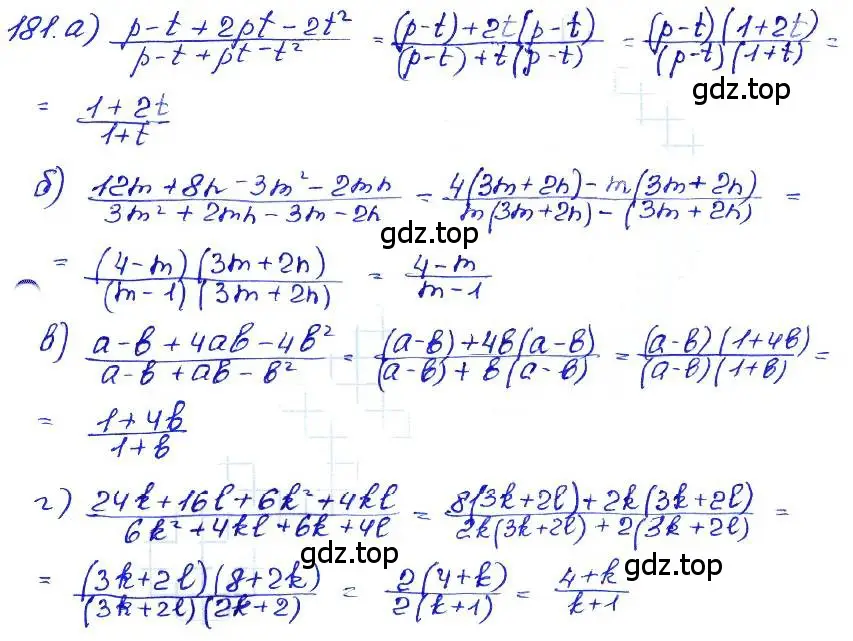 181. а) (p-t+2pt-2t²)/(p-t+pt-t²) = ((p-t)+2t(p-t))/((p-t)+t(p-t)) = ((p-t)(1+2t))/((p-t)(1+t)) =
gdz.top
= (1+2t)/(1+t)
б) (12m+8n-3m²-2mn)/(3m²+2mn-3m-2n) = (4(3m+2n)-m(3m+2n))/(m(3m+2n)-(3m+2n)) =
gdz.top
= ((4-m)(3m+2n))/((m-1)(3m+2n)) = (4-m)/(m-1)
в) (a-b+4ab-4b²)/(a-b+ab-b²) = ((a-b)+4b(a-b))/((a-b)+b(a-b)) = ((a-b)(1+4b))/((a-b)(1+b)) =
= (1+4b)/(1+b)
г) (24k+16l+6k²+4kl)/(6k²+4kl+6k+4l) = (8(3k+2l)+2k(3k+2l))/(2k(3k+2l)+2(3k+2l)) =
gdz.top
= ((3k+2l)(8+2k))/((3k+2l)(2k+2)) = (2(4+k))/(2(k+1)) = (4+k)/(k+1)
gdz.top